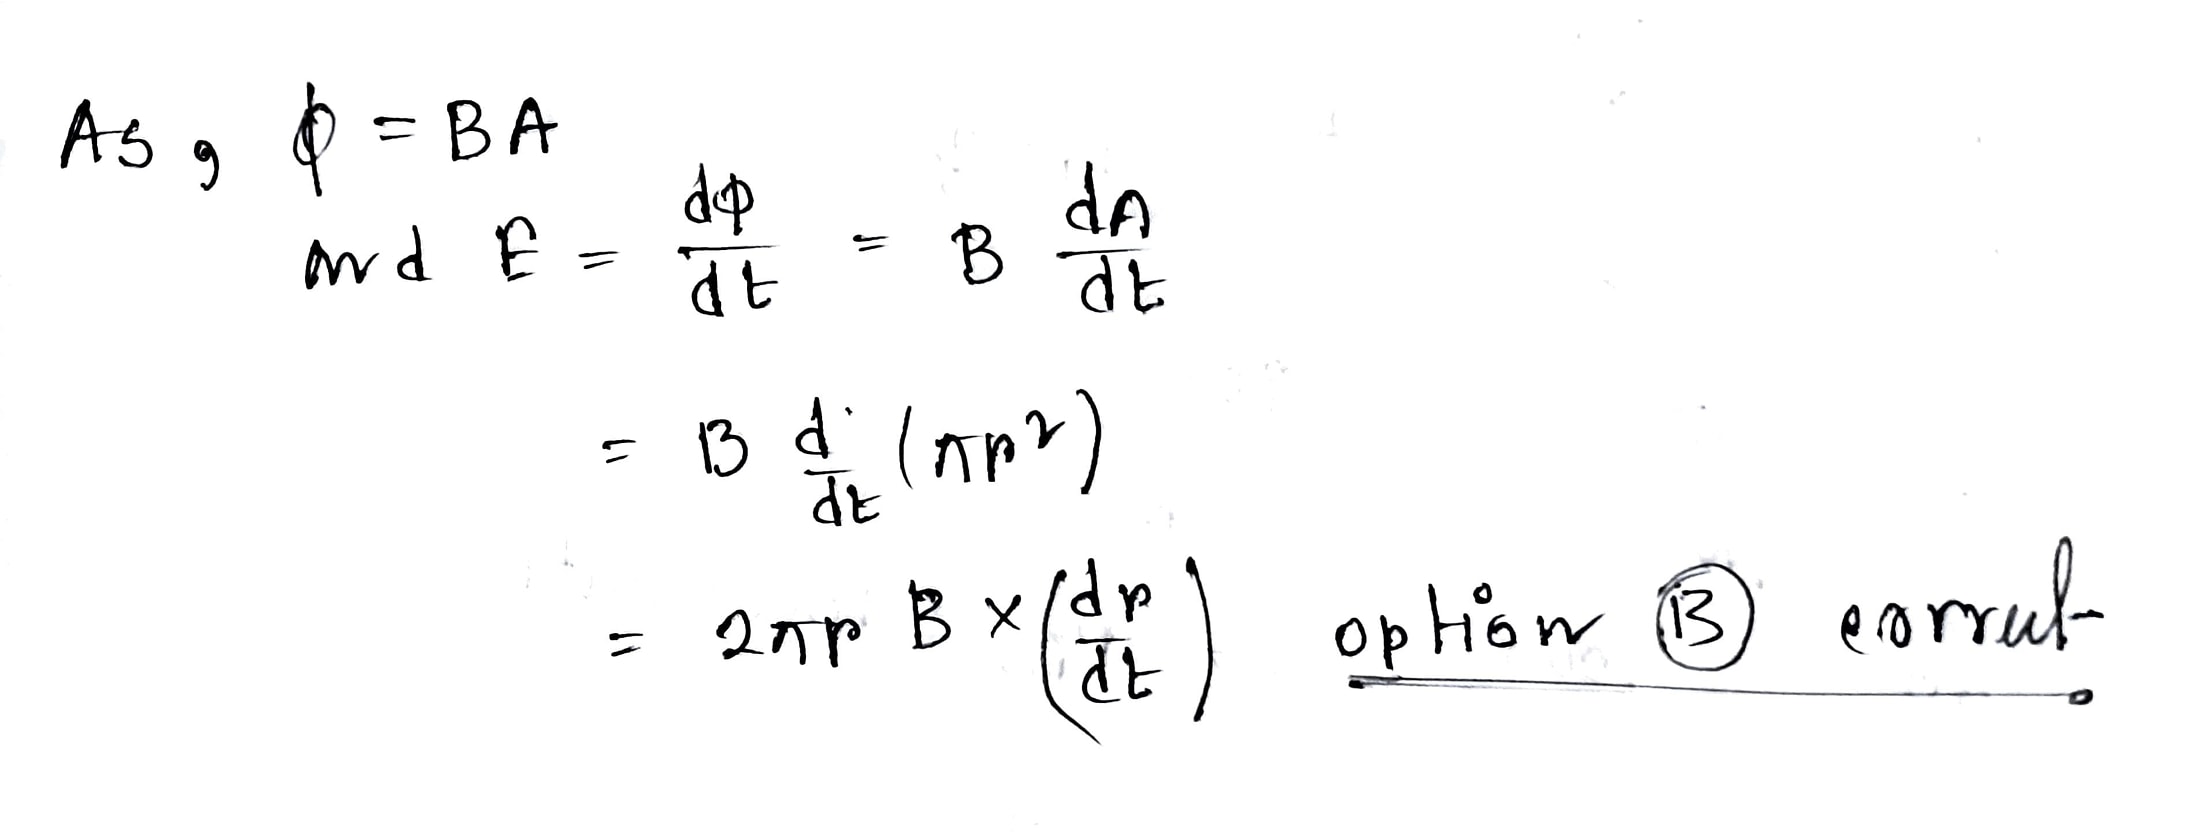 As, φ = BA
and E = dφ/dt = B dA/dt
= B d/dt (πr²)
= 2πr B × (dr/dt) option B correct